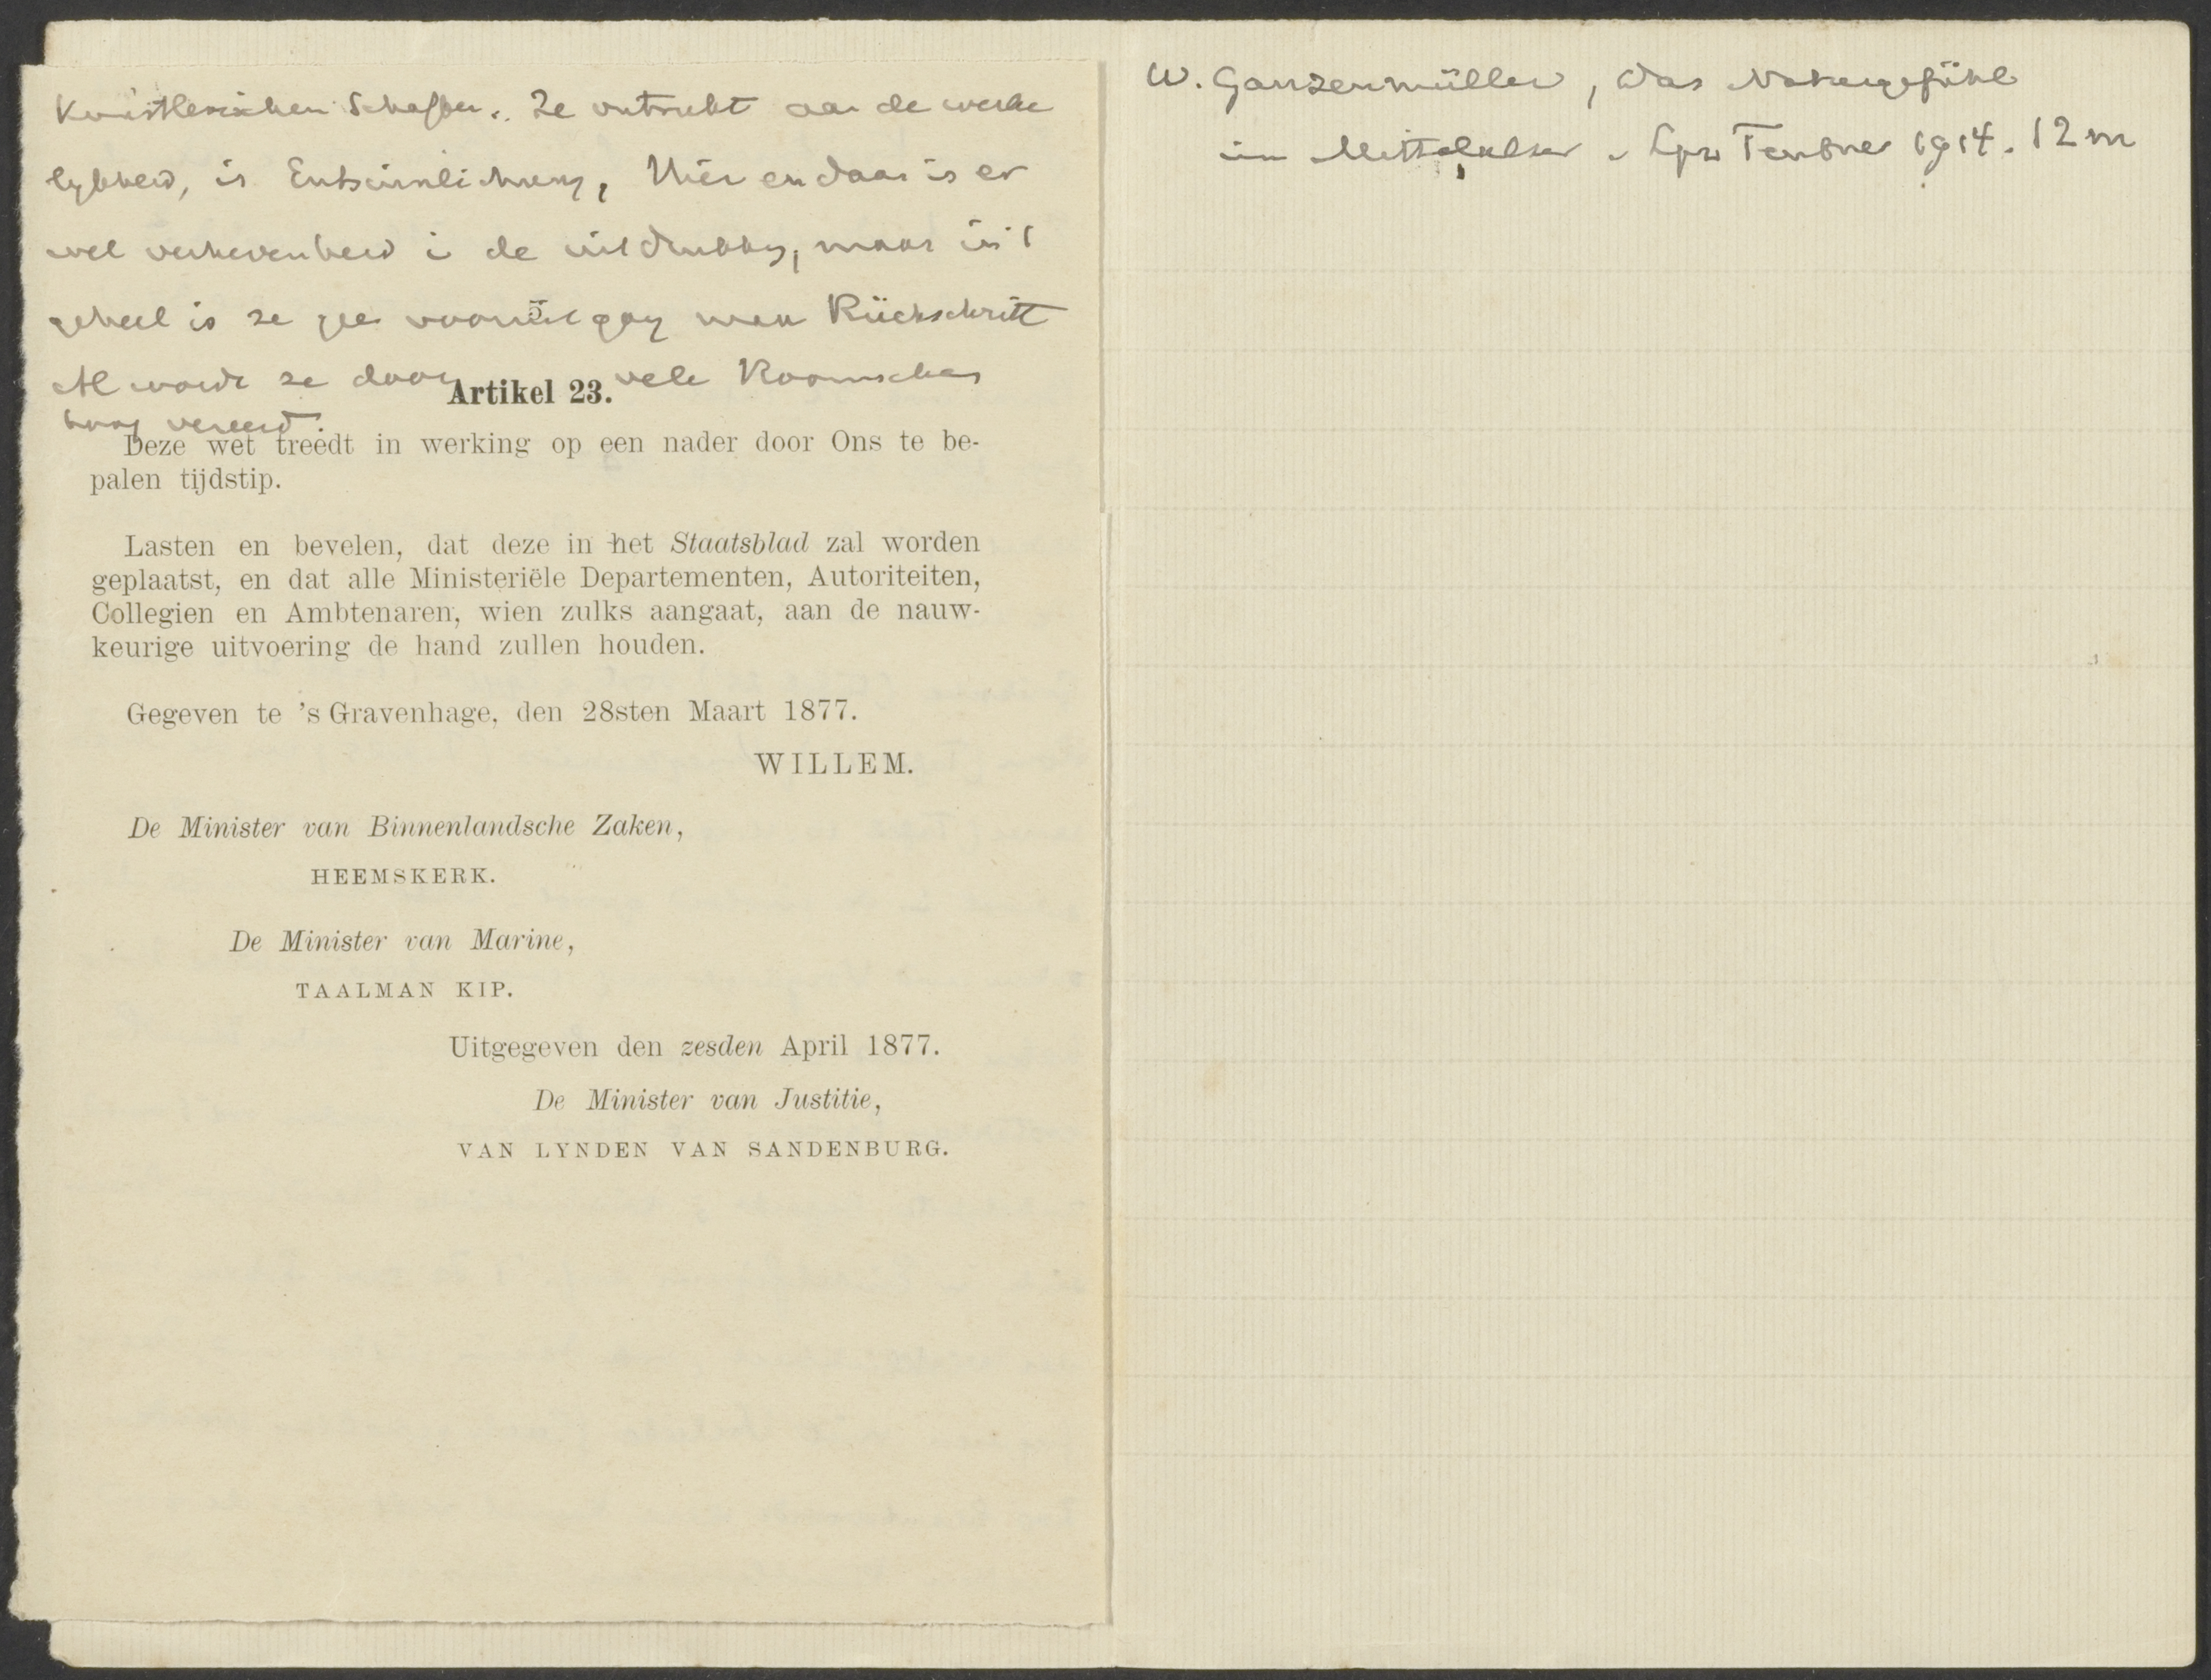 Künstlerischen Schaffen. Ze ontrukt aan de werke
lykheid, is Entsinnlichung, Hier en daar is er
wel verhevenheid i de uitdrukking, maar in 't
geheel is ze gee vooruitgang maar Rückschritt
Al wordt ze door vele Roomschen
hoog vereerd.
Artikel 23.
Deze wet treedt in werking op een nader door Ons te be-
palen tijdstip.
Lasten en bevelen, dat deze in het Staatsblad zal worden
geplaatst, en dat alle Ministeriële Departementen, Autoriteiten,
Collegien en Ambtenaren, wien zulks aangaat, aan de nauw-
keurige uitvoering de hand zullen houden.
Gegeven te 's Gravenhage, den 28sten Maart 1877.
WILLEM.
De Minister van Binnenlandsche Zaken,
HEEMSKERK.
De Minister van Marine,
TAALMAN KIP.
Uitgegeven den zesden April 1877.
De Minister van Justitie,
VAN LYNDEN VAN SANDENBURG.
W. Ganzenmüller, Das Naturgefühl
im Mittelalter. Lpz Teubner 1914. 12 m